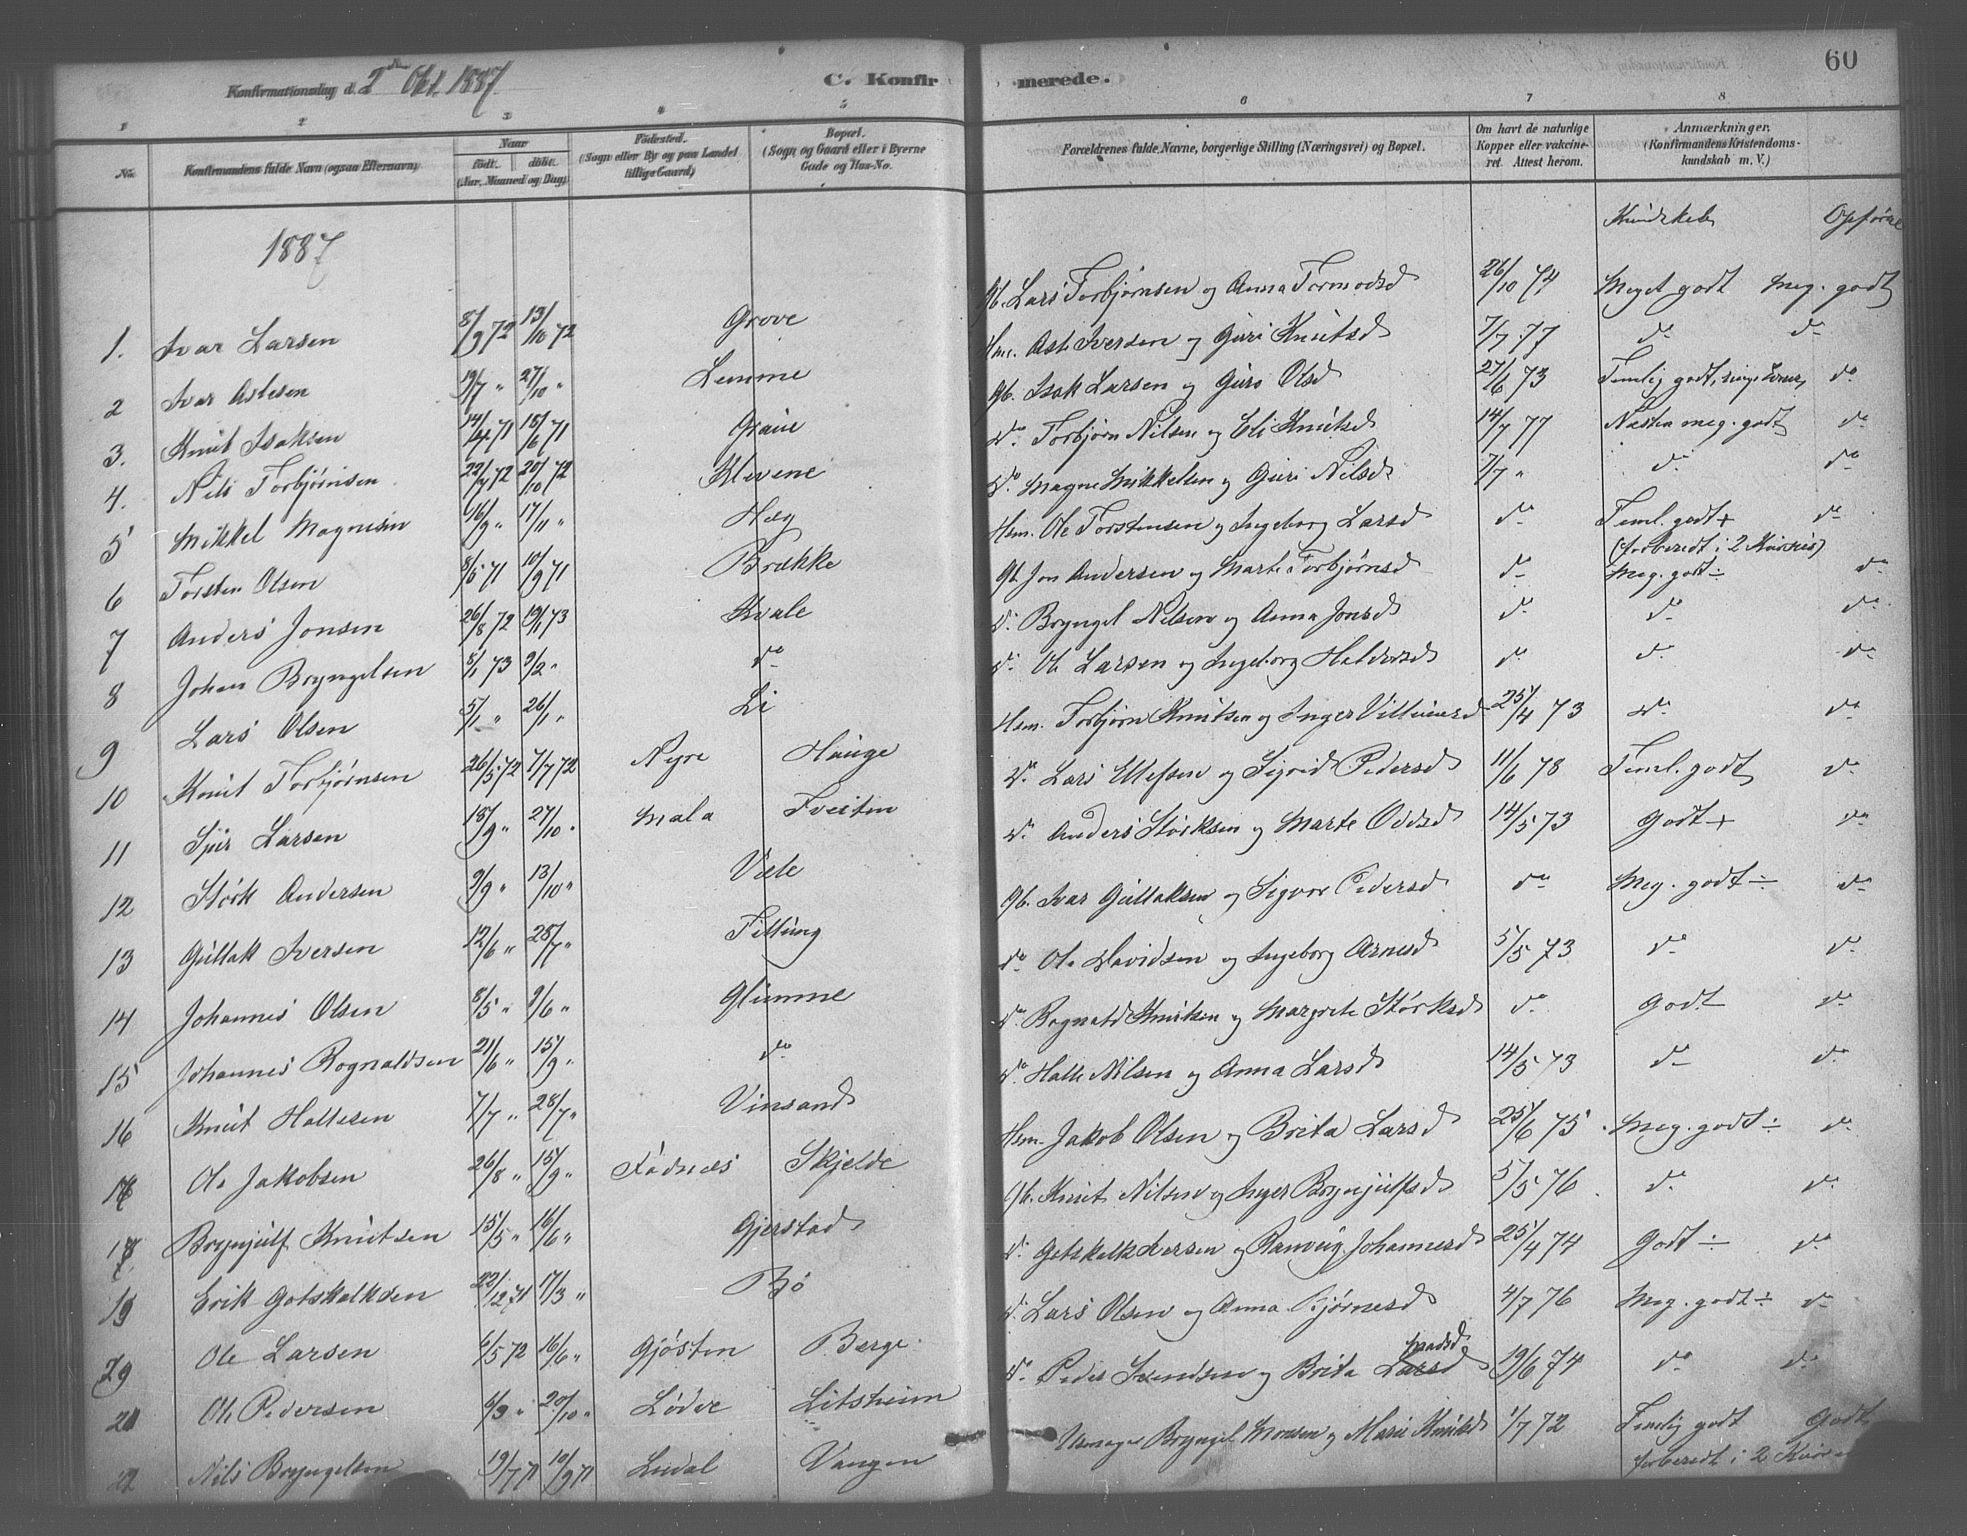 60
Konfirmationsdag d. 2den Okt. 1887
C. Konfirmerede.
1 2 3 4 5 6 7 8
No. Konfirmandens fulde Navn (ogsaa Efternavn) Naar født. døbt. (Aar, Maaned og Dag) Fødested. (Sogn eller By og paa Landet tillige Gaard) Bopæl. (Sogn og Gaard eller i Byerne Gade og Hus-No. Forældrenes fulde Navne, borgerlige Stilling (Næringsvei) og Bopæl. Om havt de naturlige Kopper eller vakcineret. Attest herom. Anmærkninger. (Konfirmandens Kristendomskundskab m. V.)
1887 Kundskab Opførsel
1. Ivar Larsen 8/9 72 13/10 72 Grove Gb. Lars Torbjørnsen og Anna Tormodsd 26/10 74 Meget godt Meg. godt
2 Ivar Aslesen 19/7 " 27/10 " Lemme Hm. Asle Iversen og Guri Knutsd 7/7 77 do do
3. Knut Isaksen 14/4 71 18/6 71 Graue Gb. Isak Larsen og Guro Olsd 27/6 73 Temlig godt, do
4. Nils Torbjørnsen 22/7 72 20/10 72 Klevene do Torbjørn Nilsen og Eli Knutsd 14/7 77 Næsten meg. godt do
5 Mikkel Magnesen 16/9 " 17/11 " Hæg do Magne Mikkelsen og Guri Nilsd 7/7 " do do
6 Torsten Olsen 8/5 71 10/9 71 Brække Hsm. Ole Torstensen og Ingeborg Larsd do Teml. godt + (forberedt i 2 Kurser) do
7 Anders Jonsen 26/8 72 19/1 73 Kvale Gb. Jon Andersen og Marta Torbjørnsd do Meg. godt ÷ do
8 Johan Bryngelsen 5/1 73 9/2 " do do Bryngel Nilsen og Anna Jonsd do do do
9 Lars Olsen 5/1 " 26/1 " Li do Ole Larsen og Ingeborg Haldorsd do do do
10 Knut Torbjørnsen 26/5 72 7/7 72 Nyre Hauge Hsm. Torbjørn Knutsen og Inger 25/4 73 do do
11 Sjur Larsen 18/9 " 27/10 " Mala Tveiten do Lars Ellefsen og Sigrid Pedersd 11/6 78 Teml. godt do
12 Størk Andersen 9/9 " 13/10 " Væle do Anders Størksen og Marte Oddsd 14/5 73 Godt + do
13 Gullak Iversen 12/6 " 28/7 " Tillung Gb. Ivar Gullaksen og Sigvor Pedersd do Meg. godt ÷ do
14 Johannes Olsen 8/5 " 9/6 " Glimme do Ole Davidsen og Ingeborg Arnesd 5/5 73 do do
15 Johannes Rognaldsen 21/6 " 15/9 " do do Rognald Knutsen og Margrete Størksd do Godt do
16 Knut Hallesen 7/7 " 28/7 " Vinsand do Halle Nilsen og Anna Larsd 14/5 73 do do
17 Ole Jakobsen 26/8 " 15/9 " Fødnæs Skjelde Hsm. Jakob Olsen og Brita Larsd 25/6 75 Meg. godt ÷ do
18 Brynjulf Knutsen 15/5 " 16/6 " Gjerstad Gb. Knut Nilsen og Inger Brynjulfsd 5/5 76 do do
19 Erik Gotskalksen 22/12 71 17/3 " Bø do Gotskalk Iversen og Ranveig Johannesd 25/4 74 Godt ÷ do
20 Ole Larsen 6/5 72 16/6 " Gjøsten Berge do Lars Olsen og Anna Bjørnesd 4/7 76 Meg. godt ÷ do
21 Ole Pedersen 6/3 " 20/10 " Lødve Litsheim do Peder Svendsen og Brita Larsd Madsd 19/6 74 do do
22 Nils Bryngelsen 19/7 71 10/9 71 Lirdal Vangen Urmager Bryngel Monsen og Mari Knutsd 1/7 72 Temlig godt forberedt i 2 Godt